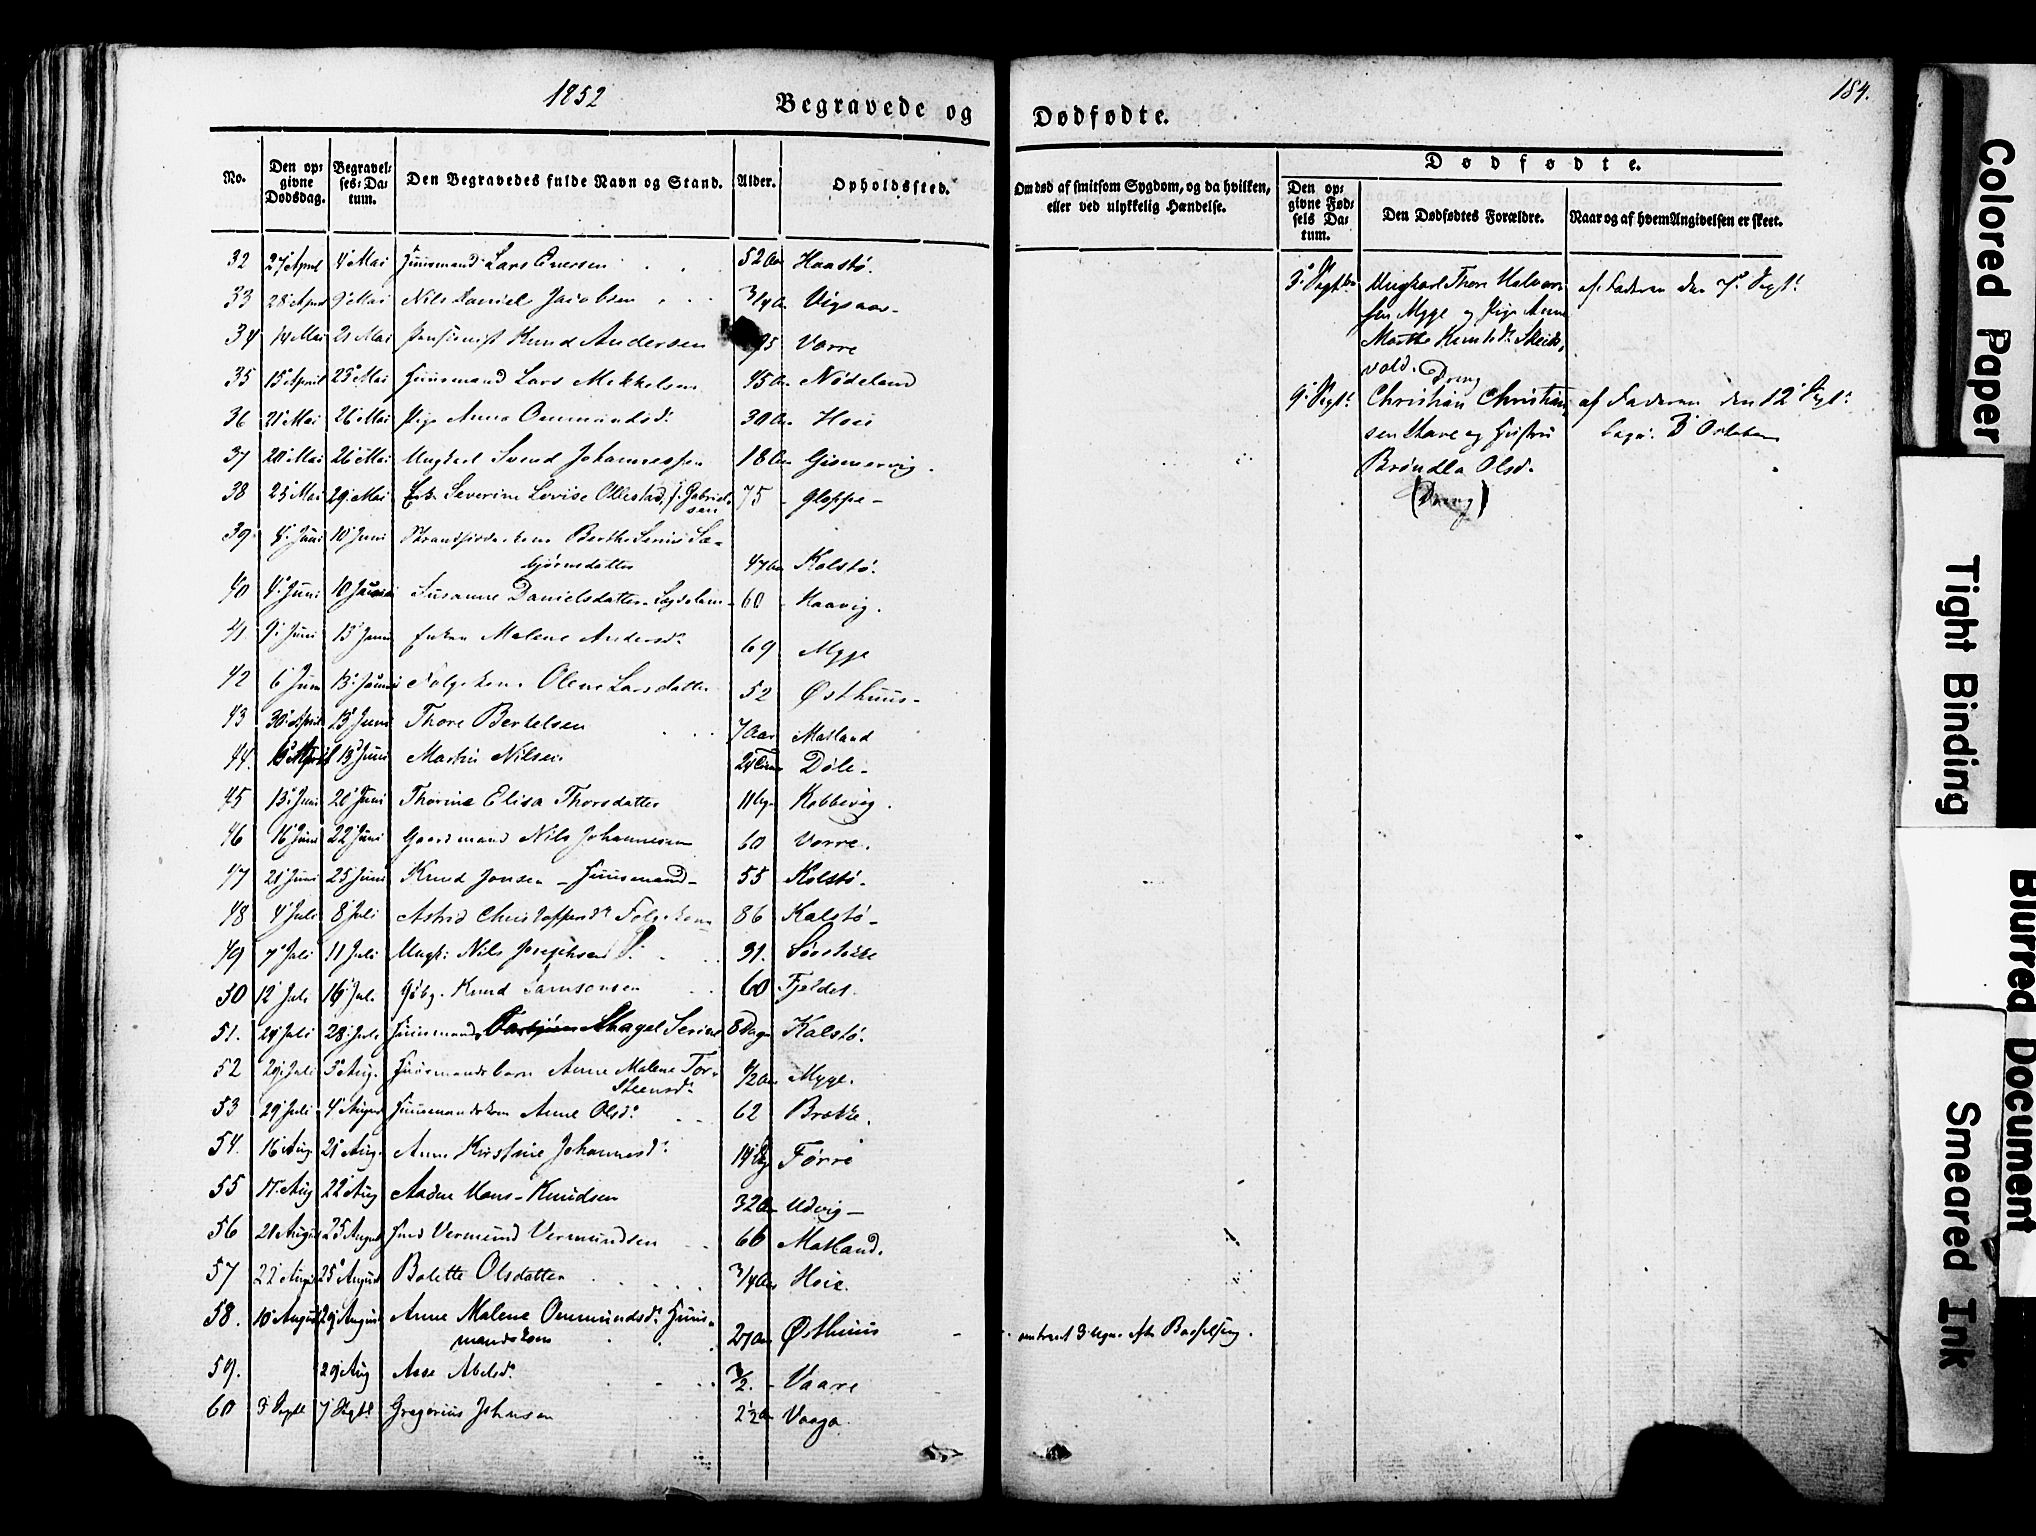 1852
184.
Begravede og Dødfødte.
No. | Den opgivne Dødsdag. | Begravelses-Datum. | Den Begravedes fulde Navn og Stand. | Alder. | Opholdssted. | Om død af smitsom Sygdom, og da hvilken, eller ved ulykkelig Hændelse.
Dødfødte.
Den opgivne Fødsels Datum. | Den Dødfødtes Forældre. | Naar og af hvem Angivelsen er skeet.
32 27 April 4 Mai Huusmand Lars Eversen 52 Aar Haastø.
33 28 April 9 Mai Nils Daniel Jacobsen 3/4 Aar Vigsaas
34 14 Mai 21 Mai Pensionist Knud Andersen Vorre
35 15 April 23 Mai Huusmand Lars Mikkelsen 45 Aar Nødeland
36 21 Mai 26 Mai Pige Anna Ommundsd. 30 Aar Hoie
37 20 Mai 26 Mai Ungkarl Svend Johannessen 18 Aar Gismervig.
38 25 Mai 29 Mai Severine Lovise Ollestad, f. Gabrielsen 75 Gloppe
39. 4 Juni 10 Juni Strandsidderkone Berthe Serine
bjørnsdatter 47 Aar Kalstø.
40 4. Juni 10 Juni Susanne Danielsdatter 60 Haavig.
41 9. Juni 13 Juni Enken Malene Andersd. 69 Mygge
42 6 Juni 13. Juni Følgekone Olene Larsdatter 52 Østhuus
43 30 April 13 Juni Thore Bertelsen 7 Aar Matland
44. April 13 Juni Nilsen Døle
45 13. Juni 20 Juni Thorine Elisa Thorsdatter 11 Ug. Kobbevig.
46 16 Juni 22 Juni Gaardmand Nils Johannesen 60 Vorre.
47 21 Juni 25 Juni Knud Jonsen Huusmand 55 Kalstø.
48 4 Juli 8 Juli Astrid Christophersd. Følgekone 86 Kalstø
49 7 Juli 11 Juli Ungk: Nils Josephsen 31.
50 12 Juli 16 Juli Knud Samsonsen 60 Fjeldet.
51. 24 Juli 28. Juli Huusmands Serine 8 Dage Kalstø.
52 29 Juli 3 Aug. Huusmandsbarn Anne Malene Torsteensd. 1/2 Aar Mygge.
53 29 Juli 4 August Huusmandskone Anne Olsd. 62 Brekke.
54. 16 Aug. 21 Aug. Anne Kristine Johannesd. 14 Dg Førre
55 17. Aug 22 Aug Aadne Hans-Knudsen 32 Aar Udvig
56 21 August 25 August Vermund Vermundsen 66 Matland.
57 22 August 25 August Bolette Olsdatter 3/4 Aar Hoie.
58. 10 August 29 August Anne Malene Ommundsd. Huusmandskone 27 Aar Østhuus omtrent 3 Uger efter Barselseng.
59. 29 Aug Aase Abelsd. 1/2. Vaare
60 3 Septb 7 Septb Gregorius Johnsen 2 1/2 Aar Vaage.
3. Septbr Ungkarl Thore Halvorsen Mygge og Pige Anne Marthe Knudsd. Skeisvold. Dreng af Faderen den 7. Septb.
9. Septb. Christian Christiansen Stave og Hustru Brøndla Olsd. (Dreng) af Faderen den 12 Septb.
3 October
Colored Paper
Tight Binding
Blurred Document
Smeared Ink